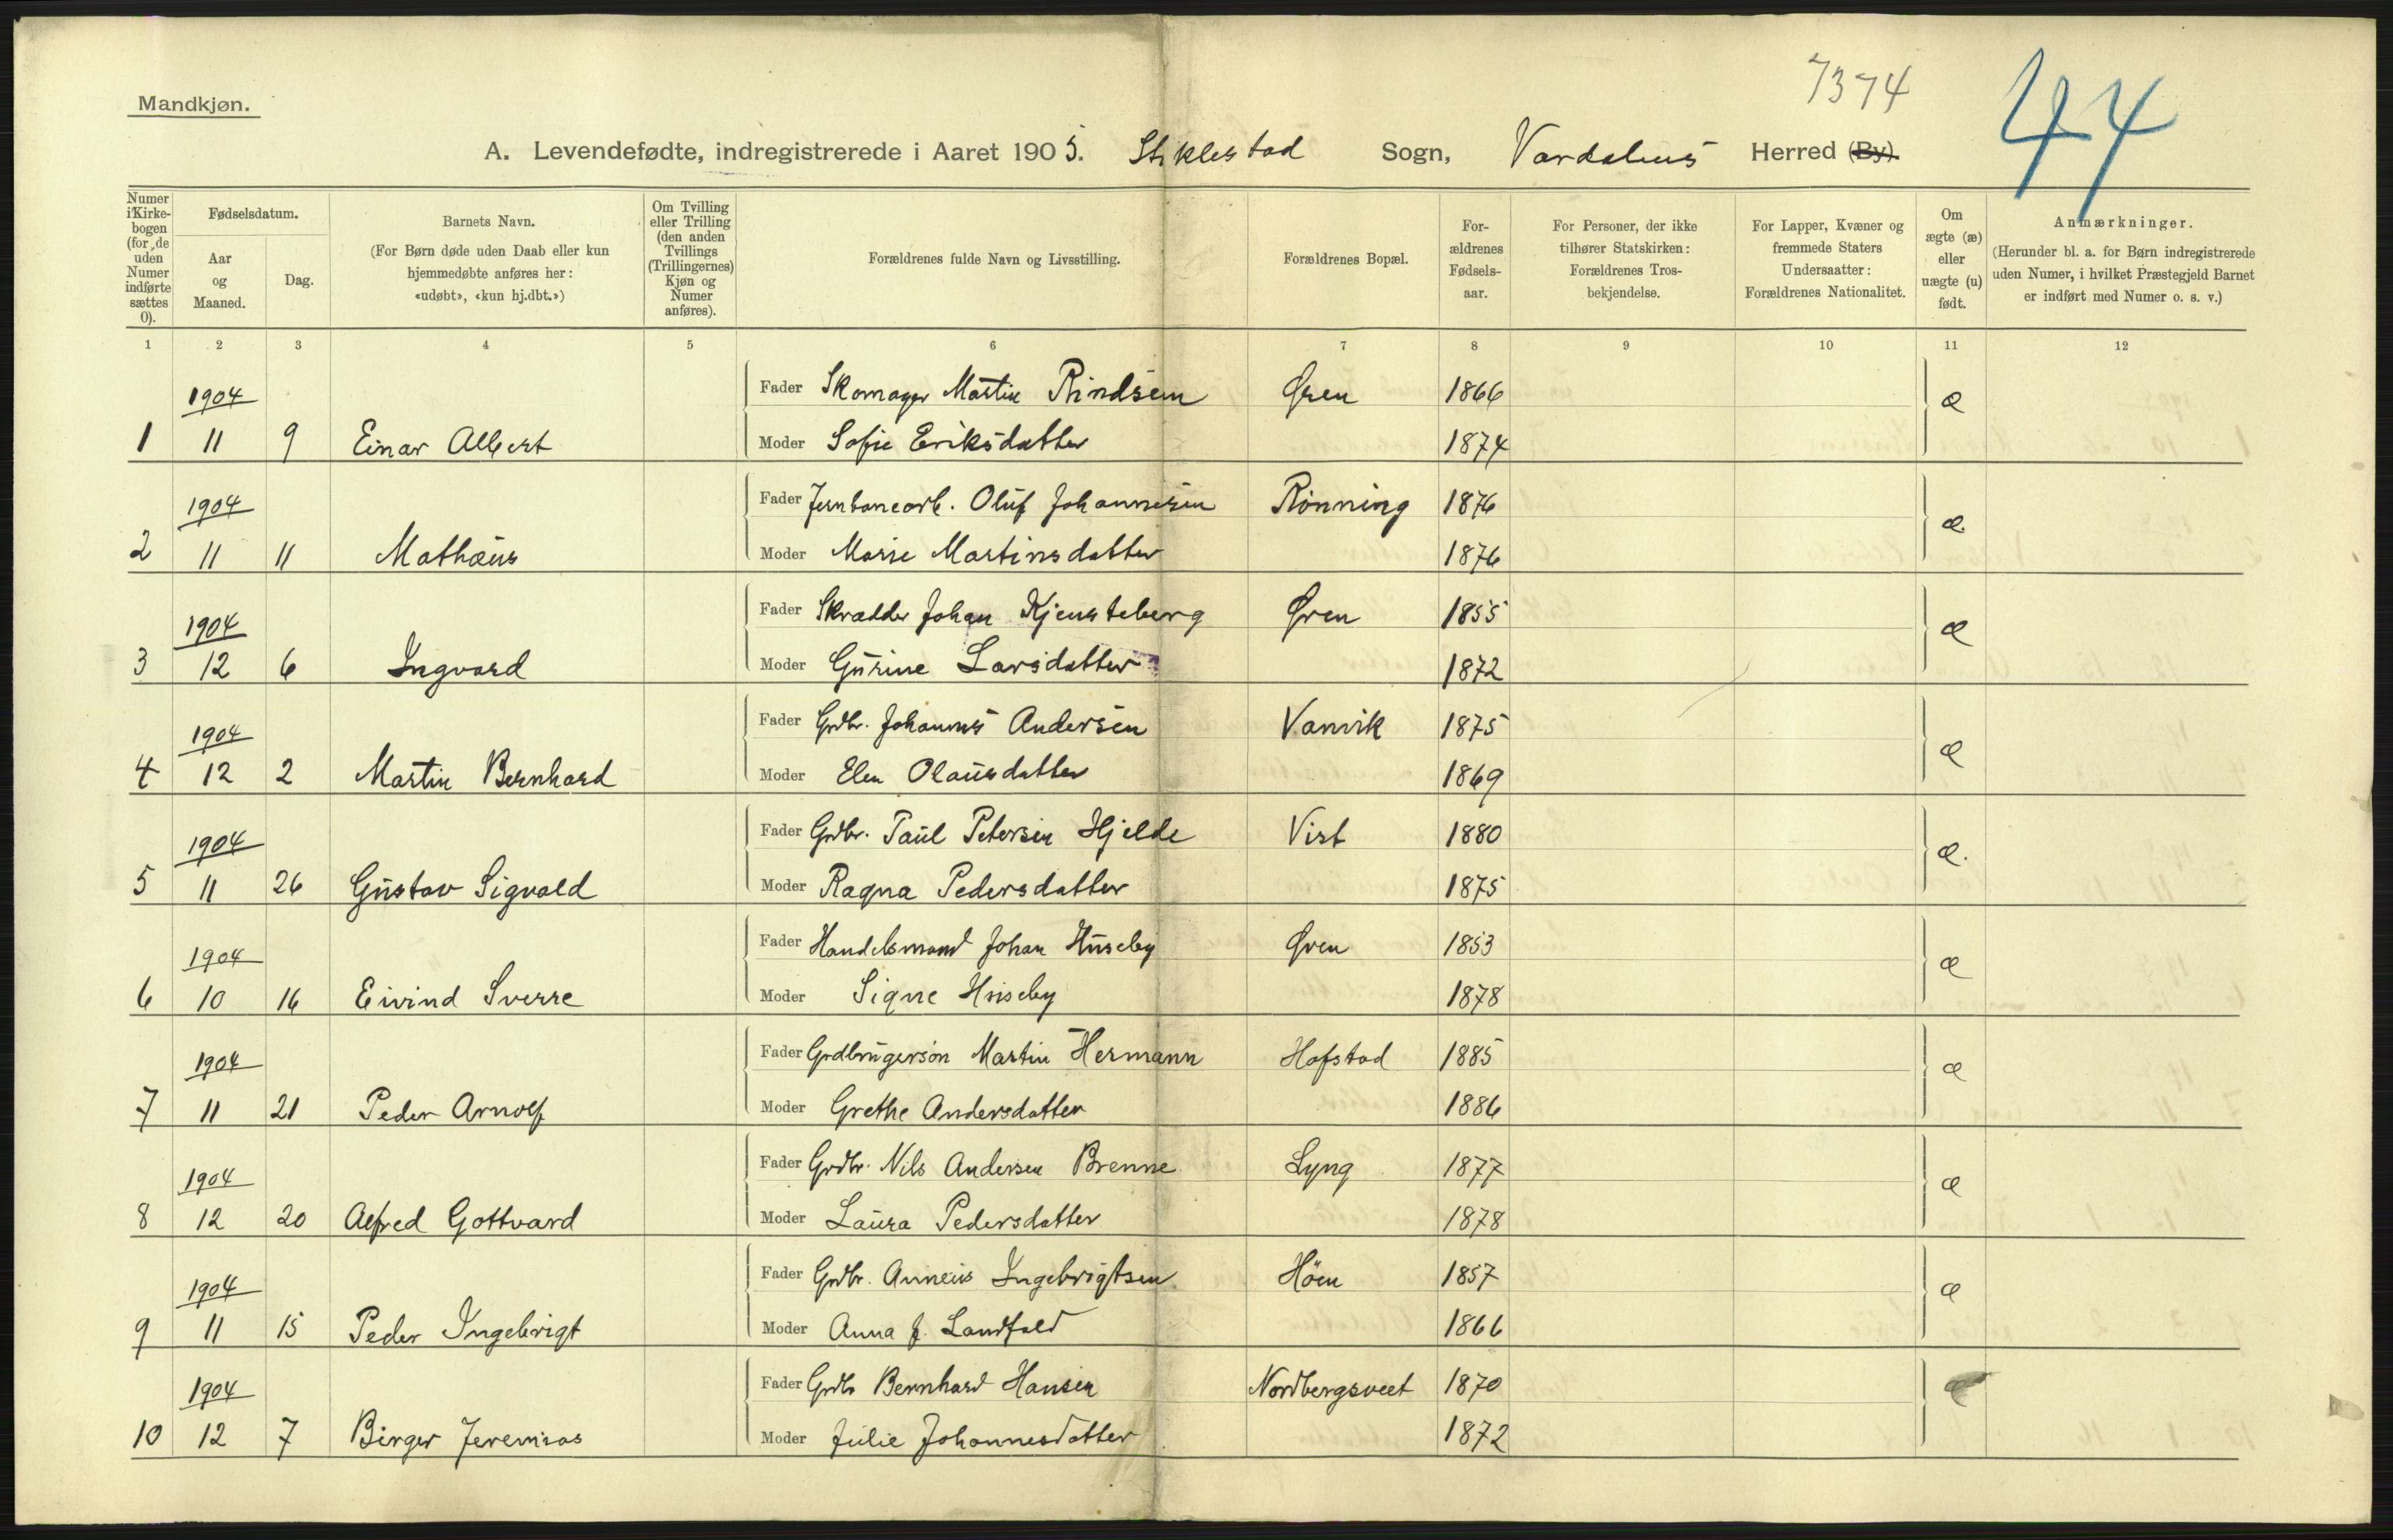 7374
44
Mandkjøn.
A. Levendefødte, indregistrerede i Aaret 1905. Stiklestad Sogn, Værdalens Herred (By).
Numer i Kirke-bogen (for de uden Numer indførte sættes 0).
Fødselsdatum.
Aar og Maaned.
Dag.
Barnets Navn.
(For Børn døde uden Daab eller kun hjemmedøbte anføres her: «udøbt», «kun hj.dbt.»)
Om Tvilling eller Trilling (den anden Tvillings (Trillingernes) Kjøn og Numer anføres).
Forældrenes fulde Navn og Livsstilling.
Forældrenes Bopæl.
For-ældrenes Fødsels-aar.
For Personer, der ikke tilhører Statskirken: Forældrenes Tros-bekjendelse.
For Lapper, Kvæner og fremmede Staters Undersaatter: Forældrenes Nationalitet.
Om ægte (æ) eller uægte (u) født.
Anmærkninger.
(Herunder bl. a. for Børn indregistrerede uden Numer, i hvilket Præstegjeld Barnet er indført med Numer o. s. v.)
1 2 3 4 5 6 7 8 9 10 11 12
1904 Fader Skomager Martin Rindsem Øren 1866 æ
1 11 9 Einar Albert Moder Sofie Eriksdatter 1874
1904 Fader Jernbanearb. Oluf Johannesen Rönning 1876 æ.
2 11 11 Mathæus Moder Marie Martinsdatter 1876
1904 Fader Skrædder Johan Kjensteberg Øren 1855 æ
3 12 6 Ingvard Moder Gurine Larsdatter 1872
1904 Fader Grdbr. Johannes Andersen Vanvik 1875 æ
4 12 2 Martin Bernhard Moder Elen Olausdatter 1869
1904 Fader Grdbr. Paul Petersen Hjelde Vist 1880 æ.
5 11 26 Gustav Sigvald Moder Ragna Pedersdatter 1875
1904 Fader Handelsmand Johan Huseby Øren 1853 æ
6 10 16 Eivind Sverre Moder Signe Huseby 1878
1904 Fader Grdbrugersön Martin Hermann Hofstad 1885 æ
7 11 21 Peder Arnolf Moder Grethe Andersdatter 1886
1904 Fader Grdbr. Nils Andersen Brenne Lyng 1877 æ
8 12 20 Alfred Gottvard Moder Laura Pedersdatter 1878
1904 Fader Grdbr. Anneus Ingebrigtsen Höen 1857 æ
9 11 15 Peder Ingebrigt Moder Anna J. Landfald 1866
1904 Fader Grdbr Bernhard Hansen Nordbergsveet 1870 æ
10 12 7 Birger Jeremias Moder Julie Johannesdatter 1872